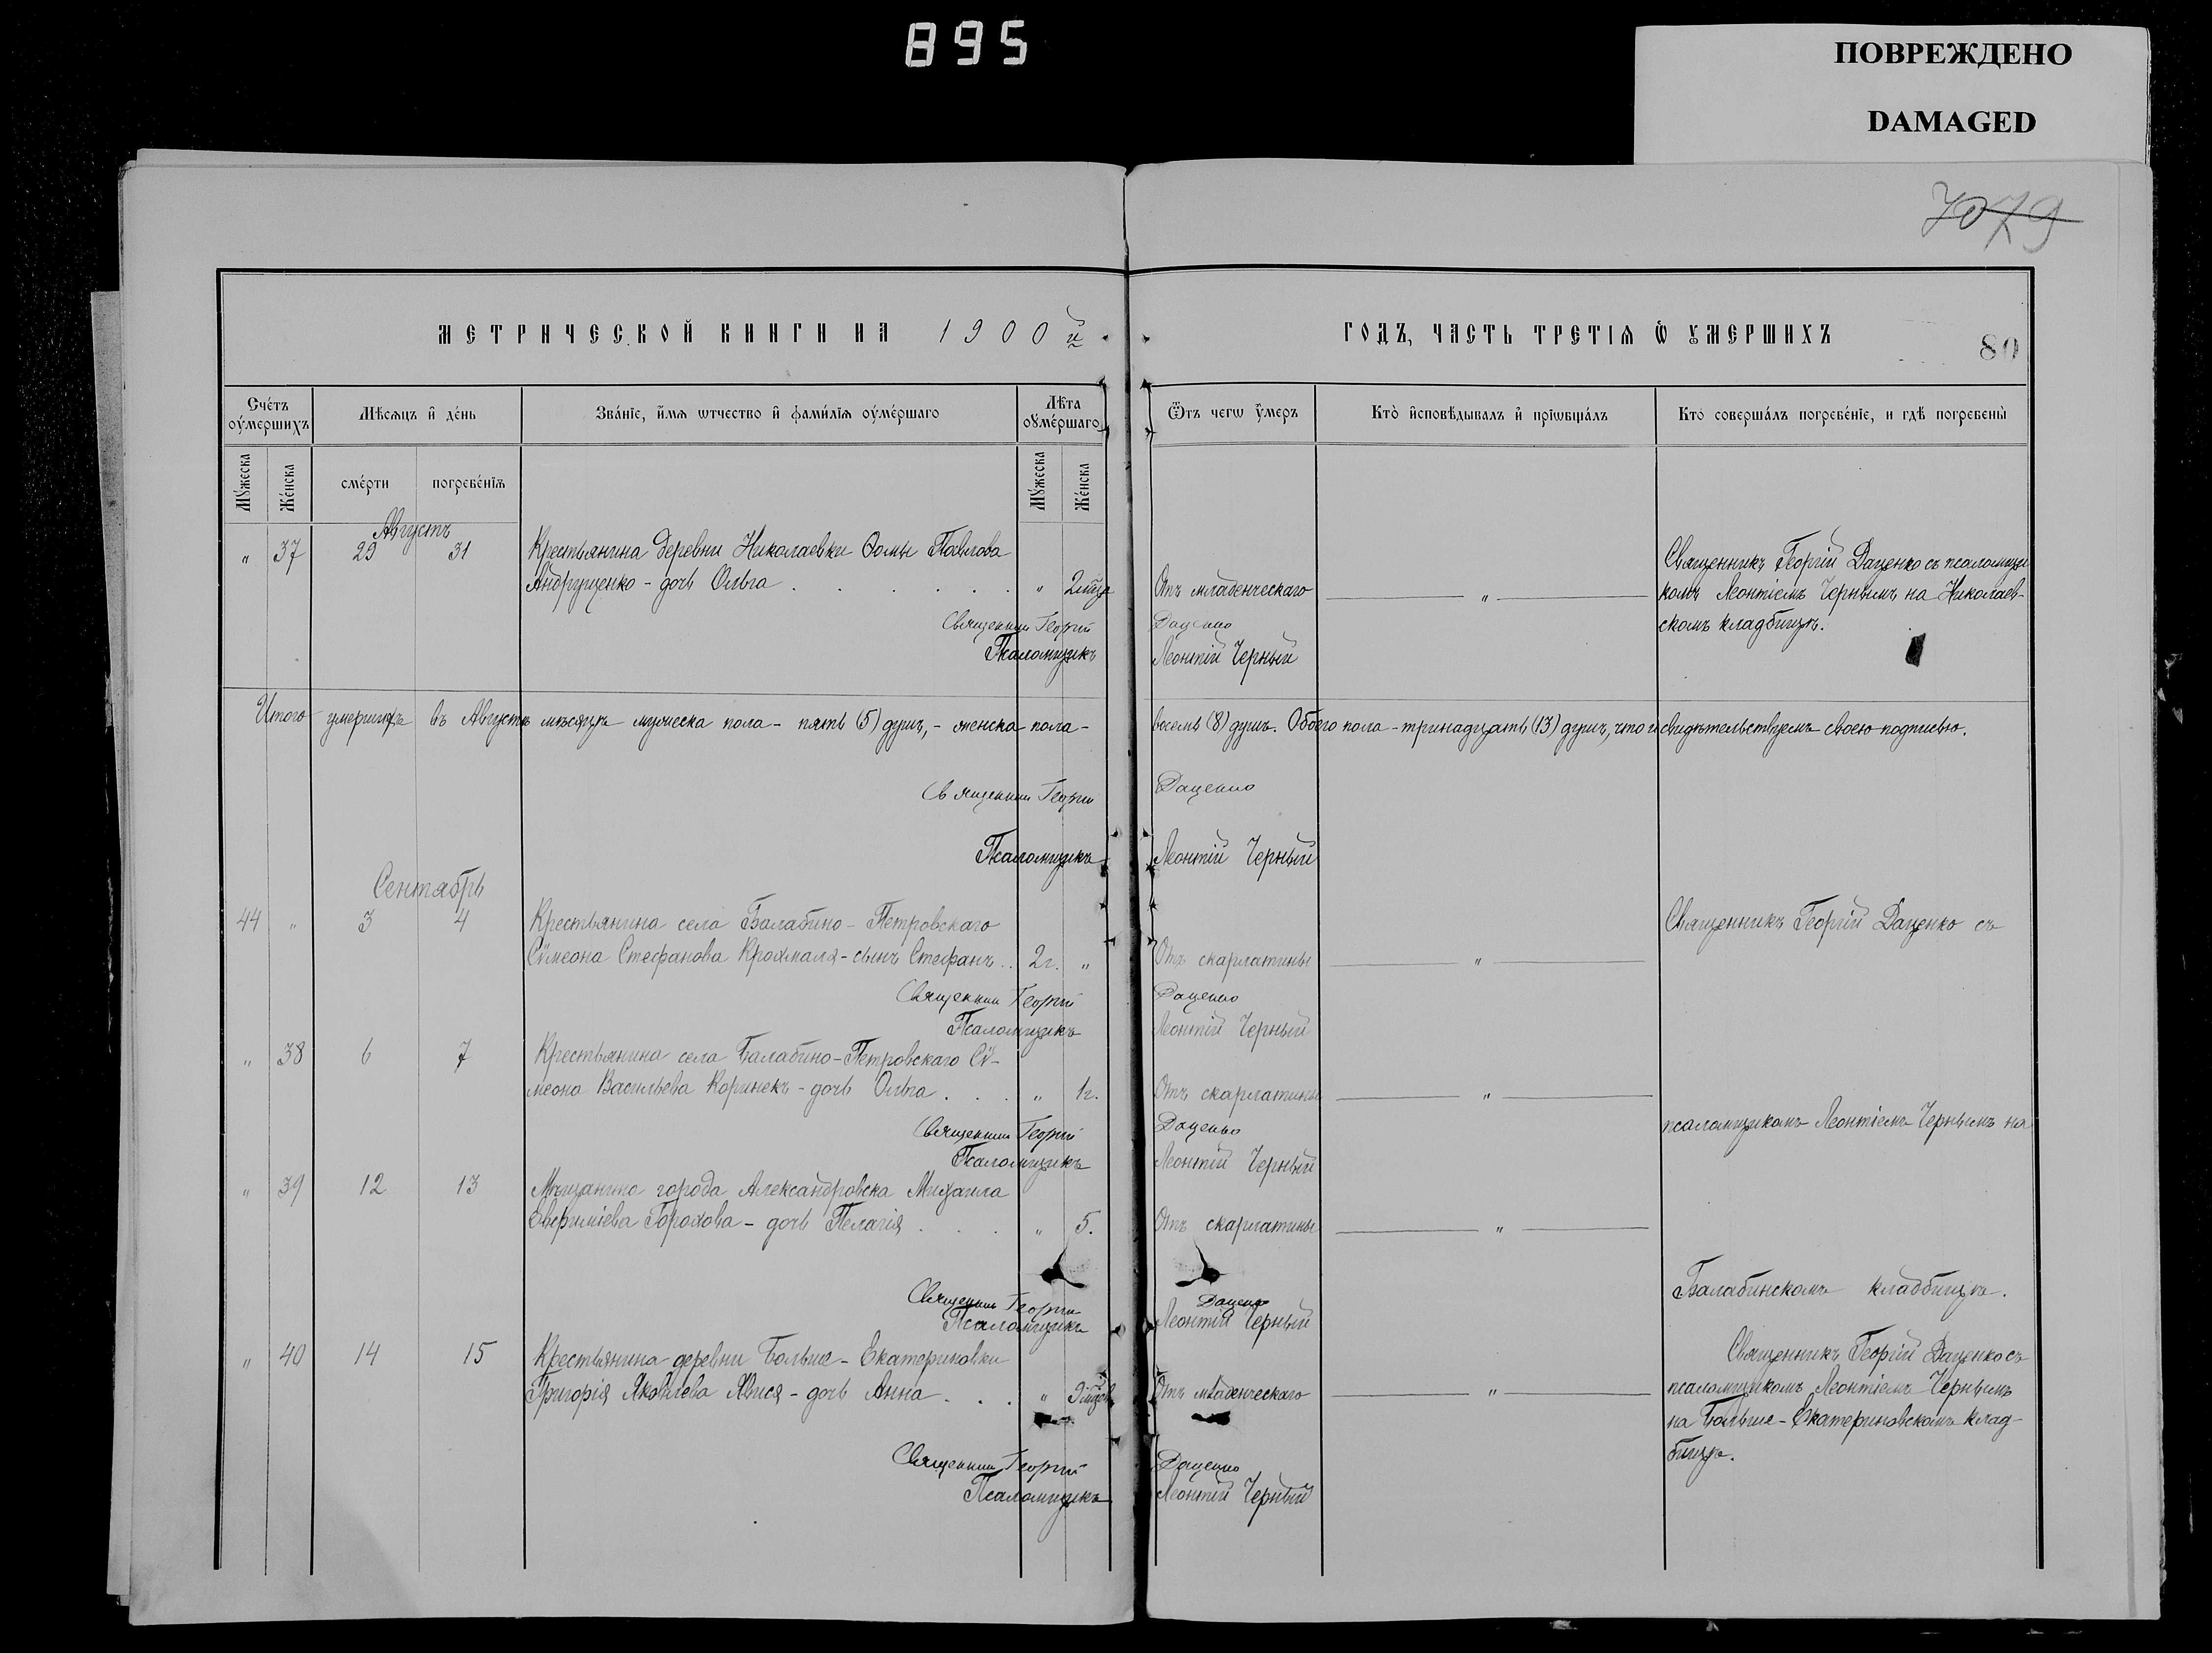 895
ПОВРЕЖДЕНО
DAMAGED
7079
МЕТРИЧЕСКОЙ КНИГИ НА 1900й ГОДЪ, ЧАСТЬ ТРЕТІѦ Ѡ УМЕРШИХЪ
80
Счетъ оумершихъ
Мѣсяцъ и день
Званіе, имя ѡтчество и фамиліѧ оумершаго
Лѣта оумершаго
Ѿтъ чегѡ умеръ
Кто исповѣдывалъ и пріѡбщалъ
Кто совершалъ погребеніе, и гдѣ погребены
Мужеска Женска смерти погребеніѧ Мужеска Женска
Августъ
" 37 29 31 Крестьянина деревни Николаевки Ѳомы Павлова
Священникъ Георгій Даценко съ псаломщи
Андрущенко - дочь Ольга . . . . . . " 2 мѣсяца Отъ младенческаго " комъ Леонтіемъ Чернымъ на Николаев-
Священникъ Георгій Даценко скомъ кладбищѣ.
Псаломщикъ Леонтій Черный
Итого умершихъ въ Августѣ мѣсяцѣ мужеска пола - пять (5) душъ, - женска пола - восемь (8) душъ. Обоего пола - тринадцать (13) душъ, что и свидѣтельствуемъ своею подписью.
Священникъ Георгій Даценко
Псаломщикъ Леонтій Черный
Сентябрь
44 " 3 4 Крестьянина села Балабино - Петровскаго Священникъ Георгій Даценко съ
Сѵмеона Стефанова Крохмаля - сынъ Стефанъ . . 2 г. " Отъ скарлатины "
Священникъ Георгій Даценко
Псаломщикъ Леонтій Черный
" 38 6 7 Крестьянина села Балабино - Петровскаго Сѵ-
меона Васильева Коринекъ - дочь Ольга . . . " 1 г. Отъ скарлатины "
Священникъ Георгій Даценко псаломщикомъ Леонтіемъ Чернымъ на
Псаломщикъ Леонтій Черный
" 39 12 13 Мѣщанина города Александровска Михаила
Евфиміева Горохова - дочь Пелагія . . . " 5. Отъ скарлатины "
Балабинскомъ кладбищѣ.
Священникъ Георгій Даценко
Псаломщикъ Леонтій Черный
" 40 14 15 Крестьянина деревни Больше - Екатериновки Священникъ Георгій Даценко съ
Григорія Яковлева Явися - дочь Анна . . . " 9 мѣсяцевъ Отъ младенческаго " псаломщикомъ Леонтіемъ Чернымъ
на Больше - Екатериновскомъ клад-
Священникъ Георгій Даценко бищѣ.
Псаломщикъ Леонтій Черный